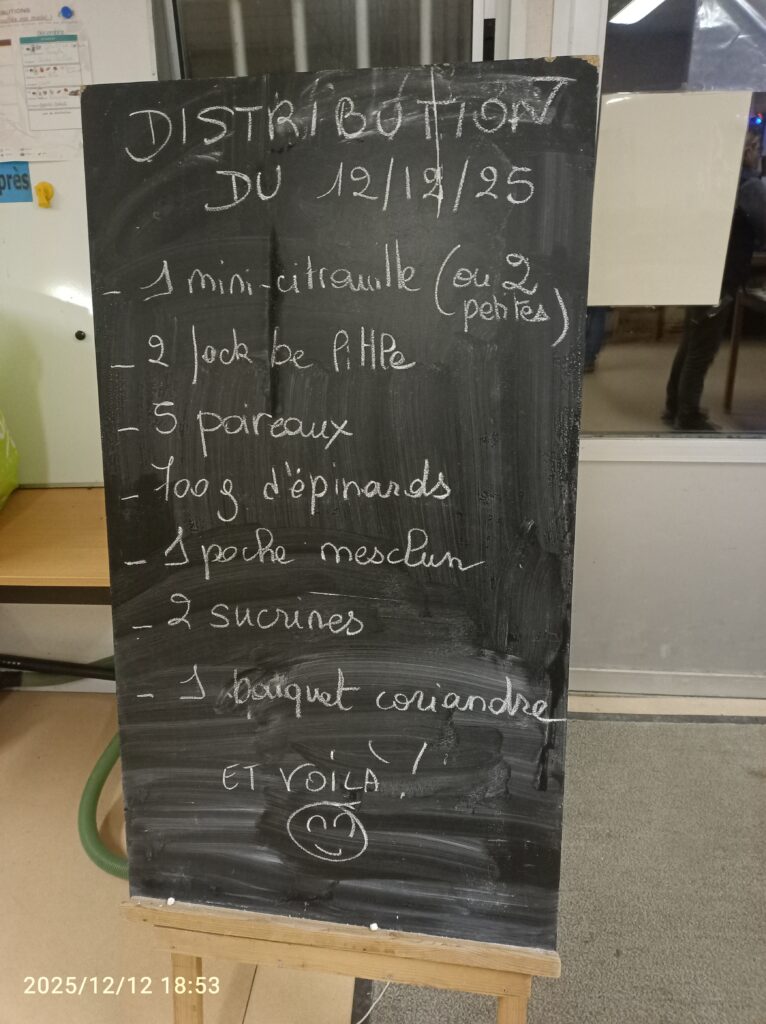 près
DISTRIBUTION
DU 12/12/25
- 1 mini-citrouille (ou 2
petites)
- 2 Jack be little
- 5 poireaux
- 100g d'épinards
- 1 poche mesclun
- 2 sucrines
- 1 bouquet coriandre
ET VOILÀ !
2025/12/12 18:53